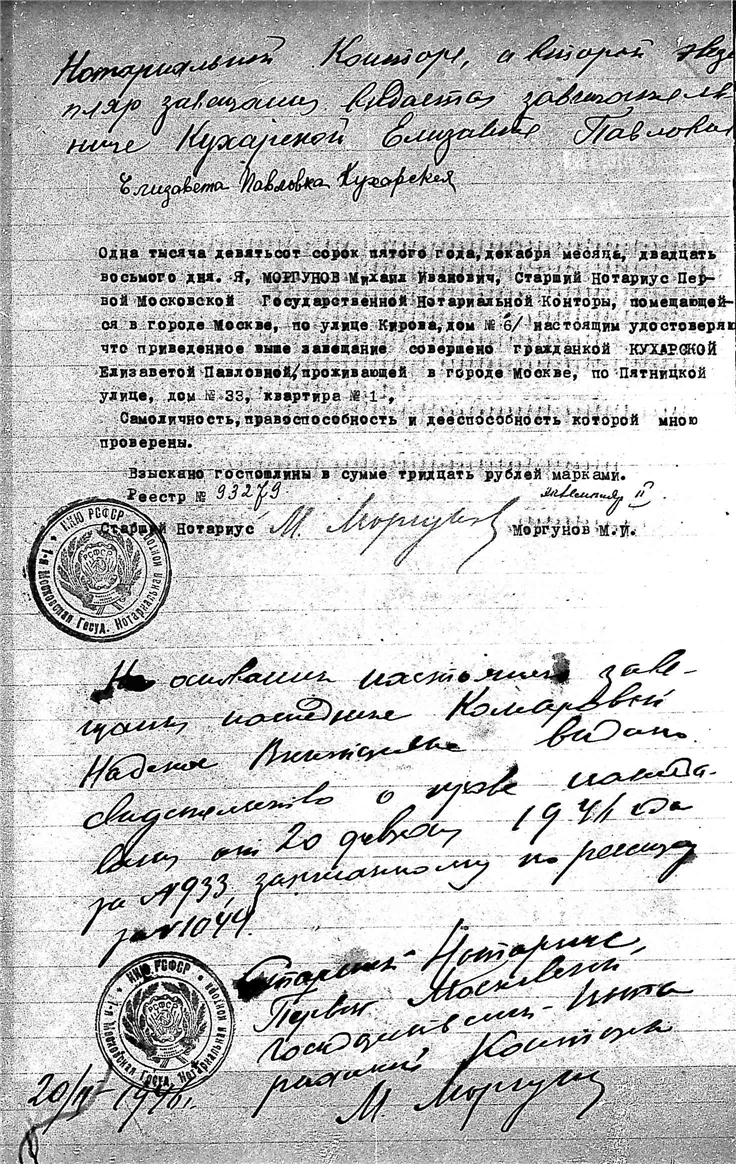 Нотариальной Конторе, а второй экзем
пляр завещания выдается завещатель
нице Кухарской Елизавете Павловне
Елизавета Павловна Кухарская
Одна тысяча девятьсот сорок пятого года, декабря месяца, двадцать
восьмого дня. Я, МОРГУНОВ Михаил Иванович, Старший Нотариус Пер-
вой Московской Государственной Нотариальной Конторы, помещающей-
ся в городе Москве, по улице Кирова, дом № 6/ настоящим удостоверяю
что приведенное выше завещание совершено гражданкой КУХАРСКОЙ
Елизаветой Павловной, проживающей в городе Москве, по Пятницкой
улице, дом № 33, квартира № 1-,
Самоличность, правоспособность и дееспособность которой мною
проверены.
Взыскано госпошлины в сумме тридцать рублей марками.
Реестр № 93279
экземпляр II
Старший Нотариус М. Моргунов Моргунов М.И.
НКЮ РСФСР
1-я Московская Госуд. Нотариальная контора
РСФСР
На основании настоящего заве-
щания наследнице Комаровой
Надежде Викторовне выдано
свидетельство о праве наследо-
вания от 20 февраля 1946 года
за №933 записанному по реестру
за №1044.
Старший Нотариус
Первой Московской
Государственной Нота
риальной Конторы
М. Моргунов
НКЮ РСФСР
1-я Московская Госуд. Нотариальная контора
20/II 1946 г.